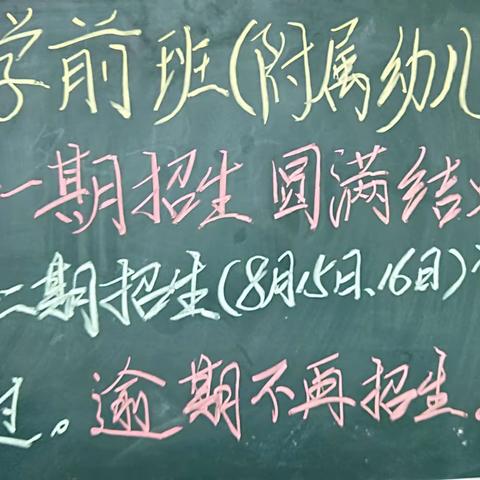 学前班(附属幼儿
一期招生圆满结
二期招生(8月15日、16日)
过。逾期不再招生。